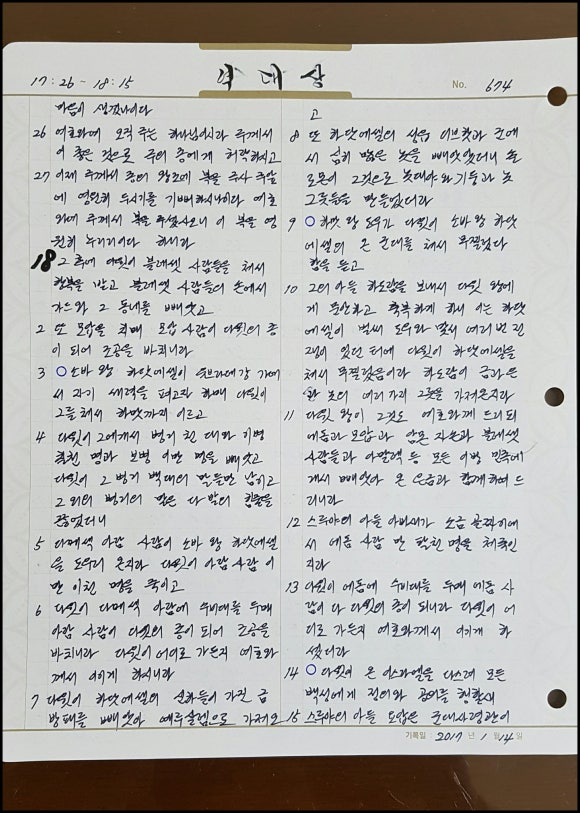 17:26 ~ 18:15
역대상
No. 674
마음이 생겼나이다
26 여호와여 오직 주는 하나님이시라 주께서
이 좋은 것으로 주의 종에게 허락하시고
27 이제 주께서 종의 왕조에 복을 주사 주 앞
에 영원히 두시기를 기뻐하시나이다 여호
와여 주께서 복을 주셨사오니 이 복을 영
원히 누리리이다 하니라
18 그 후에 다윗이 블레셋 사람들을 쳐서
항복을 받고 블레셋 사람들의 손에서
가드와 그 동네를 빼앗고
2 또 모압을 치매 모압 사람이 다윗의 종
이 되어 조공을 바치니라
3 ○ 소바 왕 하닷에셀이 유브라데 강 가에
서 자기 세력을 펴고자 하매 다윗이
그를 쳐서 하맛까지 이르고
4 다윗이 그에게서 병거 천 대와 기병
칠천 명과 보병 이만 명을 빼앗고
다윗이 그 병거 백 대의 말들만 남기고
그 외의 병거의 말은 다 발의 힘줄을
끊었더니
5 다메섹 아람 사람이 소바 왕 하닷에셀
을 도우러 온지라 다윗이 아람 사람 이
만 이천 명을 죽이고
6 다윗이 다메섹 아람에 수비대를 두매
아람 사람이 다윗의 종이 되어 조공을
바치니라 다윗이 어디로 가든지 여호와
께서 이기게 하시니라
7 다윗이 하닷에셀의 신하들이 가진 금
방패를 빼앗아 예루살렘으로 가져오
고
8 또 하닷에셀의 성읍 디브핫과 군에
서 심히 많은 놋을 빼앗았더니 솔
로몬이 그것으로 놋대야와 기둥과 놋
그릇들을 만들었더라
9 ○ 하맛 왕 도우가 다윗이 소바 왕 하닷
에셀의 온 군대를 쳐서 무찔렀다
함을 듣고
10 그의 아들 하도람을 보내서 다윗 왕에
게 문안하고 축복하게 하니 이는 하닷
에셀이 벌써 도우와 맞서 여러 번 전
쟁이 있던 터에 다윗이 하닷에셀을
쳐서 무찔렀음이라 하도람이 금과 은
과 놋의 여러 가지 그릇을 가져온지라
11 다윗 왕이 그것도 여호와께 드리되
에돔과 모압과 암몬 자손과 블레셋
사람들과 아말렉 등 모든 이방 민족에
게서 빼앗아 온 은금과 함께 하여 드
리니라
12 스루야의 아들 아비새가 소금 골짜기에
서 에돔 사람 만 팔천 명을 쳐죽인
지라
13 다윗이 에돔에 수비대를 두매 에돔 사
람이 다 다윗의 종이 되니라 다윗이 어
디로 가든지 여호와께서 이기게 하
셨더라
14 ○ 다윗이 온 이스라엘을 다스려 모든
백성에게 정의와 공의를 행할새
15 스루야의 아들 요압은 군대사령관이
기록일 : 2017 년 1 월 14 일